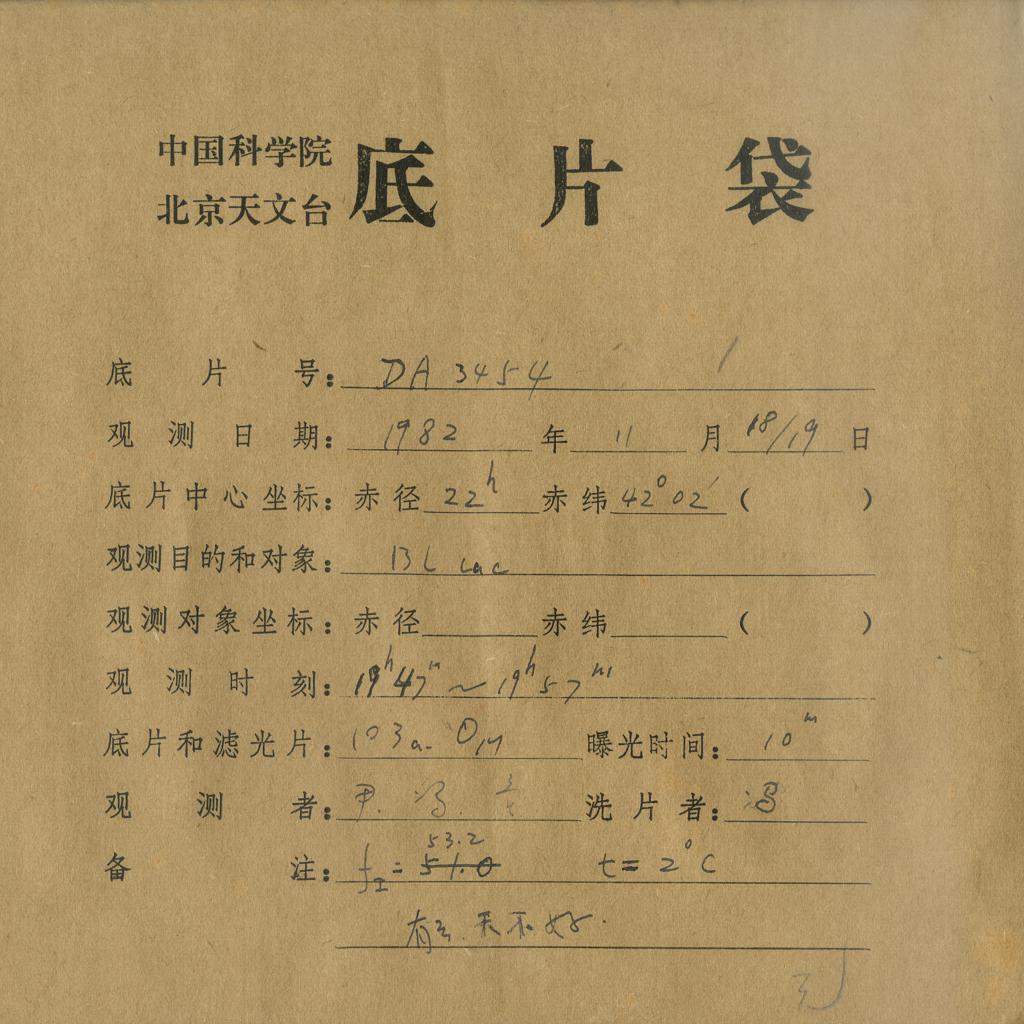 中国科学院
北京天文台
底片袋
底片号：DA 3454
观测日期：1982年11月18/19日
底片中心坐标：赤径22ʰ赤纬42°02′（ ）
观测目的和对象：BL Lac
观测对象坐标：赤径 赤纬 （ ）
观测时刻：19ʰ47ᵐ～19ʰ57ᵐ
底片和滤光片：103a-O 曝光时间：10ᵐ
观测者：尹.冯. 洗片者：冯
53.2
备注：f_I=51.0 t=2°C
有云.天不好.